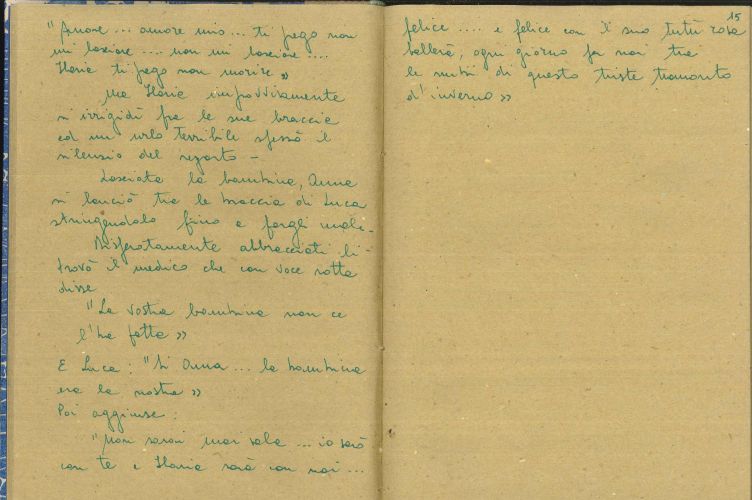 "Amore ... amore mio ... ti prego non
mi lasciare .... non mi lasciare ....
Ilaria ti prego non morire »
Ma Ilaria improvvisamente
si irrigidì fra le sue braccia
ed un urlo terribile spezzò il
silenzio del reparto -
Lasciata la bambina, Anna
si lanciò tra le braccia di Luca
stringendolo fino a fargli male.
Disperatamente abbracciati li
trovò il medico che con voce rotta
disse
"La vostra bambina non ce
l'ha fatta »
E Luca : "Sì Anna ... la bambina
era la nostra »
Poi aggiunse :
"Non sarai mai sola ... io sarò
con te e Ilaria sarà con noi ...
15
felice .... e felice con il suo tutù rosa
ballerà, ogni giorno per noi tra
le nubi di questo triste tramonto
d'inverno »